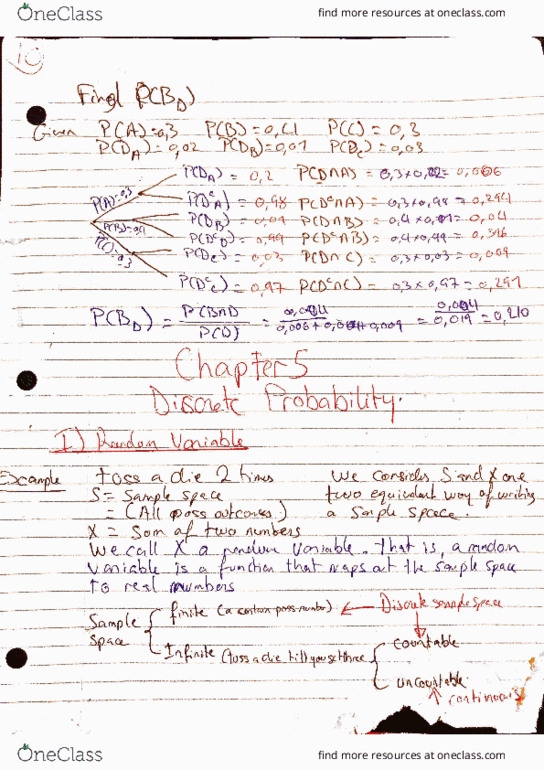 OneClass find more resources at oneclass.com
10
Find P(B_D)
Given P(A)=0,3 P(B)=0,4 P(C)=0,3
P(D_A)=0,02 P(D_B)=0,01 P(D_C)=0,03
P(D_A) = 0,2 P(D∩A) = 0,3×0,02=0,006
P(A)=0,3 P(D^c_A) = 0,98 P(D^c∩A) = 0,3×0,98=0,294
P(D_B) = 0,01 P(D∩B) = 0,4×0,01=0,04
P(B)=0,4 = 0,99 P(D^c∩B) = 0,4×0,99=0,396
P(C)=0,3 P(D_C) = 0,03 P(D∩C) = 0,3×0,03=0,009
P(D^c_C) = 0,97 P(D^c∩C) = 0,3×0,97=0,291
P(B_D) = P(B∩D)/P(D) = 0,004/0,006+0,004+0,009 = 0,004/0,019 = 0,210
Chapter 5
Discrete Probability.
I) Random Variable
Example toss a die 2 times We consider S and X one
S = Sample space two equivalent way of writing
= (All poss outcomes) a sample space.
X = Som of two numbers
We call X a random variable. That is, a random
variable is a function that maps out the sample space
to real numbers
Sample space
finite (a certain poss number) ← Discrete sample space
Infinite (toss a die till you get three
countable
uncountable
↑ continuous
OneClass find more resources at oneclass.com